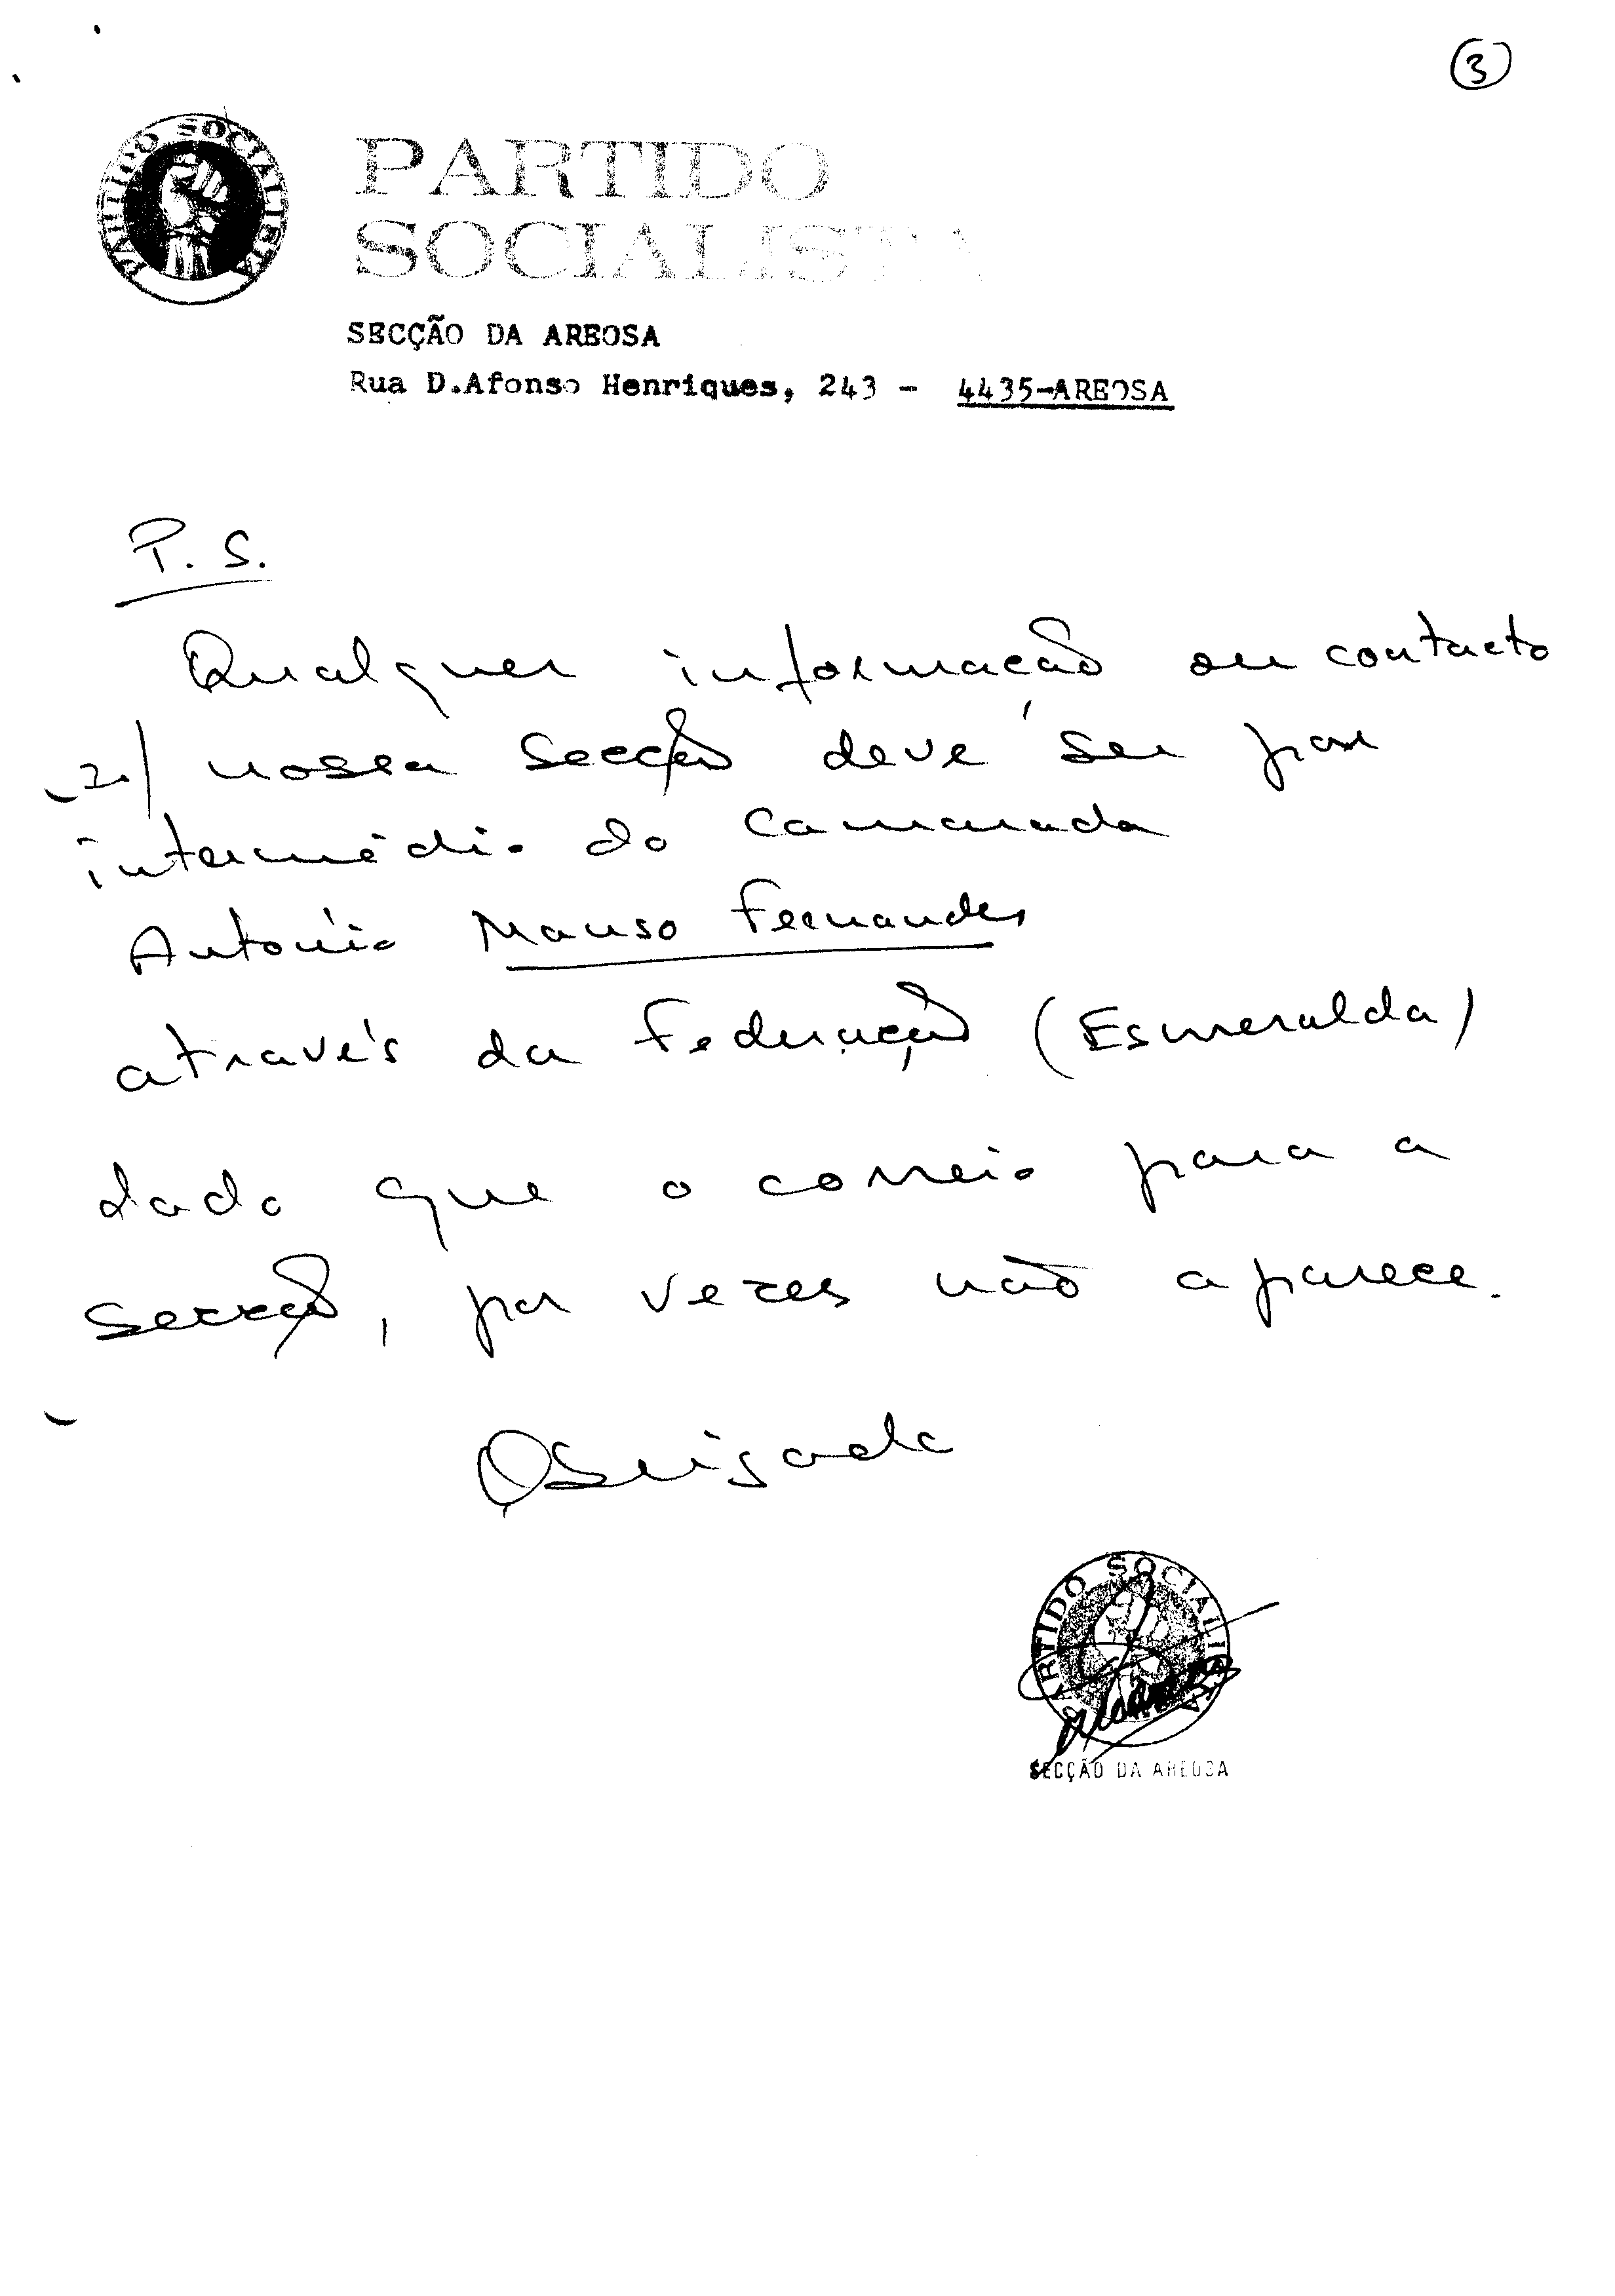 3
PARTIDO SOCIALISTA
PARTIDO
SOCIALISTA
SECÇÃO DA AREOSA
Rua D.Afonso Henriques, 243 - 4435-AREOSA
P. S.
Qualquer informação ou contacto
nossa Secção deve ser por
intermédio do Camarada
António Manso Fernandes
através da Federação (Esmeralda)
dado que o correio para a
secção, por vezes não aparece.
Obrigado
PARTIDO SOCIALISTA
SECÇÃO DA AREOSA